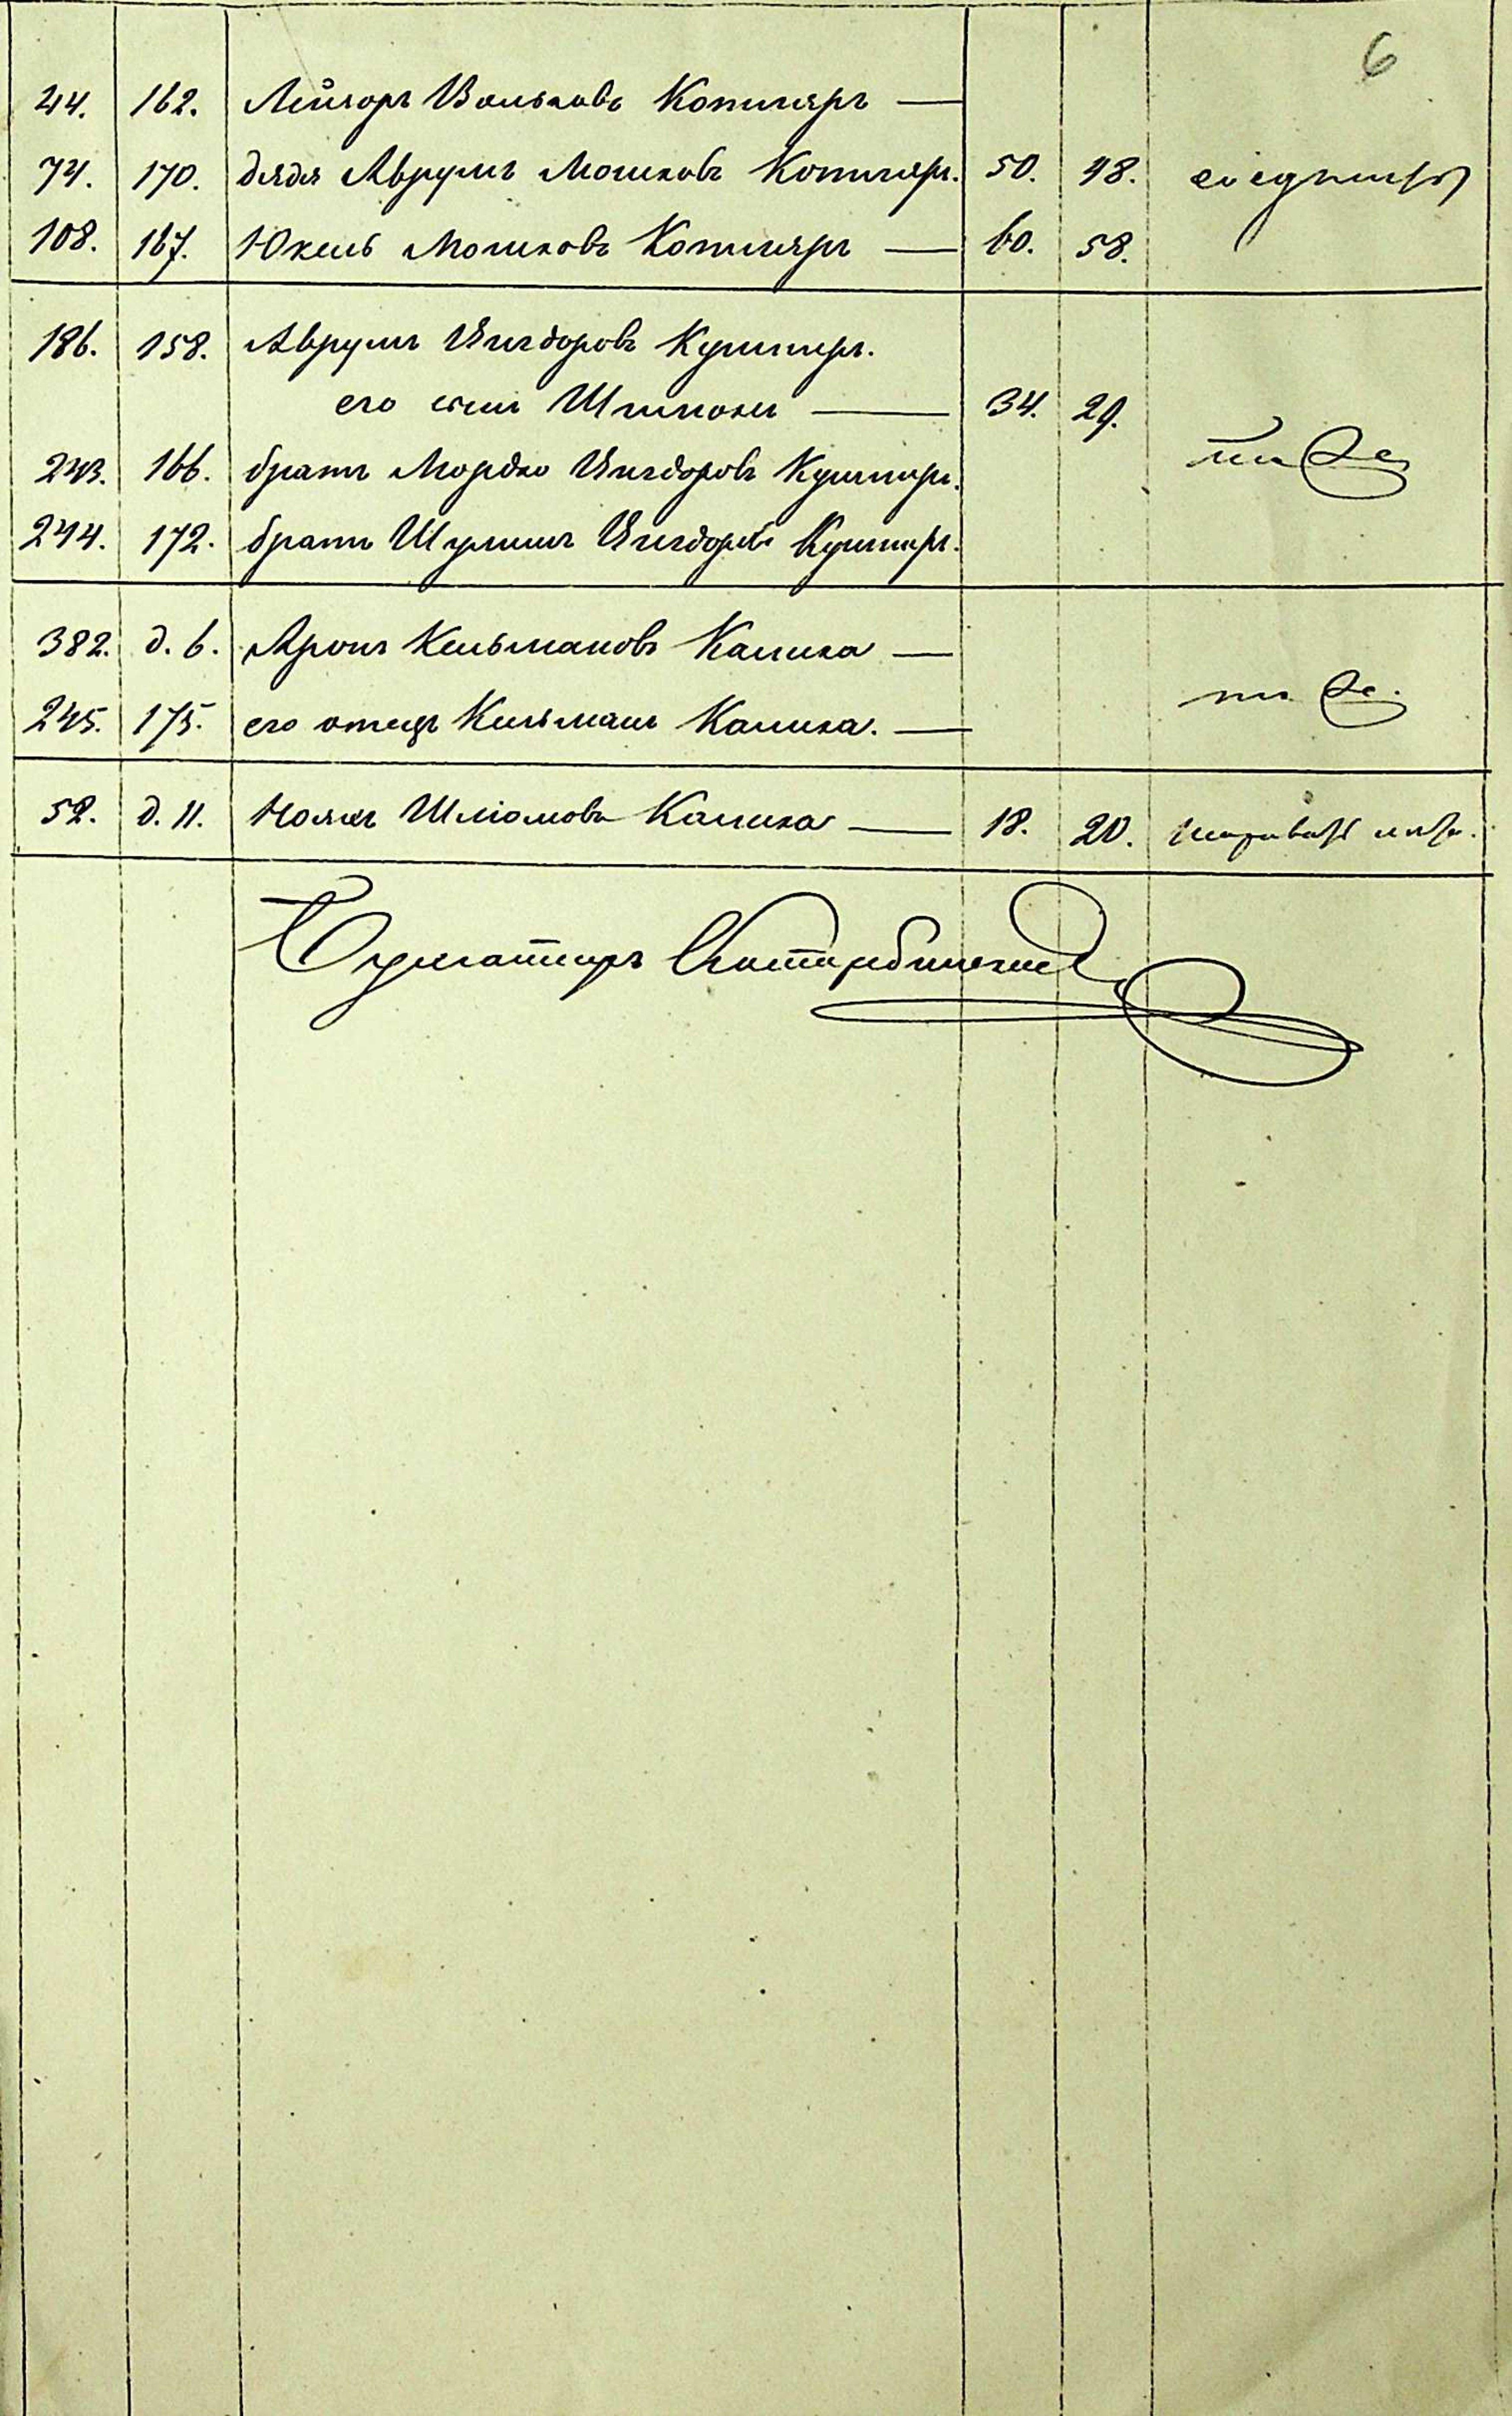 6
44. 162. Лейзоръ Вольковъ Котляръ —
74. 170. дядя Аврумъ Мошковъ Котляръ. 50. 48.
108. 167. Юкель Мошковъ Котляръ — 60. 58.
186. 158. Аврумъ Вигдоровъ Кушниръ.
его сынъ — 34. 29.
243. 166. братъ Мордко Вигдоровъ Кушниръ.
244. 172. братъ Шулимъ Вигдоровъ Кушниръ.
382. д. 6. Аронъ Кельмановъ Калика —
245. 175. его отецъ Кельманъ Калика. —
52. д. 11. Шліомовъ Калика — 18. 20.